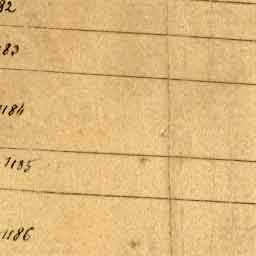 82
83
1184
1185
1186